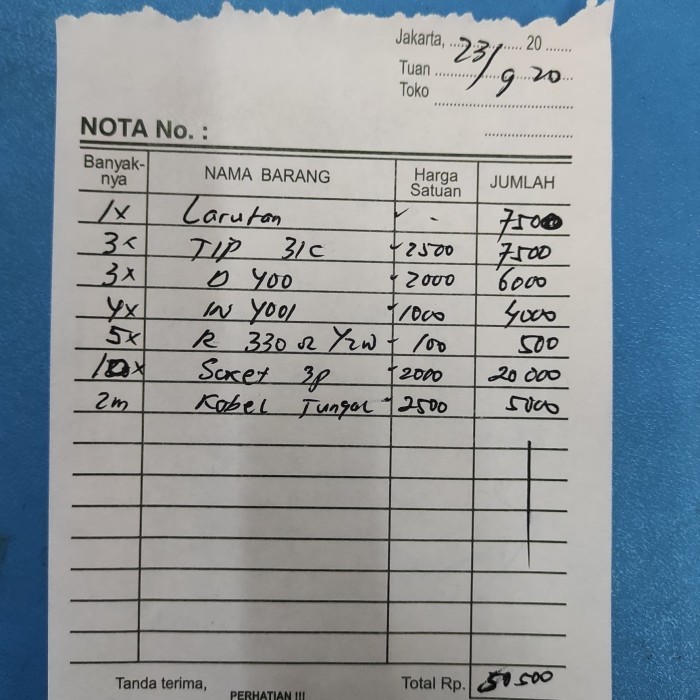 Jakarta, 23/ 20
Tuan 9 20
Toko
NOTA No. :
Banyak-nya NAMA BARANG Harga Satuan JUMLAH
1x Larutan - 7500
3x TIP 31C 2500 7500
3x D 400 2000 6000
4x IN 4001 1000 4000
5x R 330 Ω 1/2W 100 500
10x Socket 3p 2000 20 000
2m Kabel Tunggal 2500 5000
Tanda terima, Total Rp. 50 500
PERHATIAN !!!